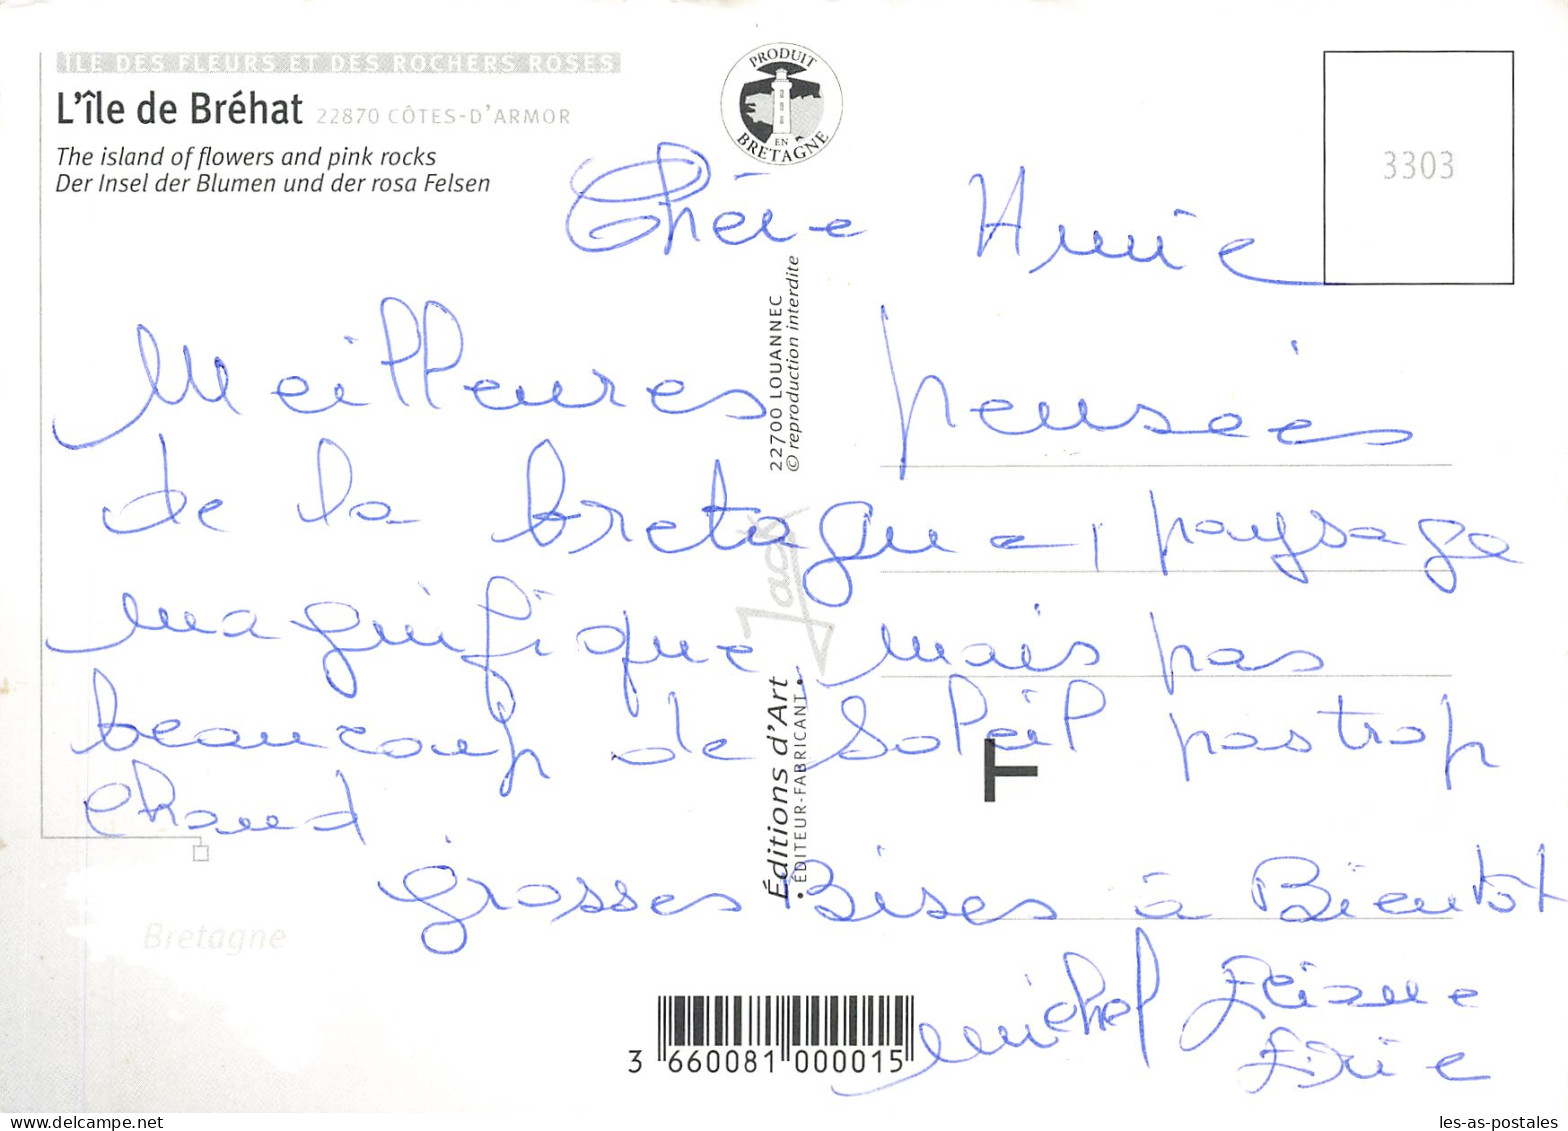 ÎLE DES FLEURS ET DES ROCHERS ROSES
L'île de Bréhat 22870 CÔTES-D'ARMOR
The island of flowers and pink rocks
Der Insel der Blumen und der rosa Felsen
PRODUIT
EN
BRETAGNE
3303
Chère Annie
Meilleures pensées
de la bretagne, paysage
magnifique mais pas
beaucoup de soleil pas trop
chaud
grosses Bises à Bientot
michel
22700 LOUANNEC
© reproduction interdite
Jack
Éditions d'Art
• ÉDITEUR-FABRICANT •
T
Bretagne
3 660081 000015
les-as-postales